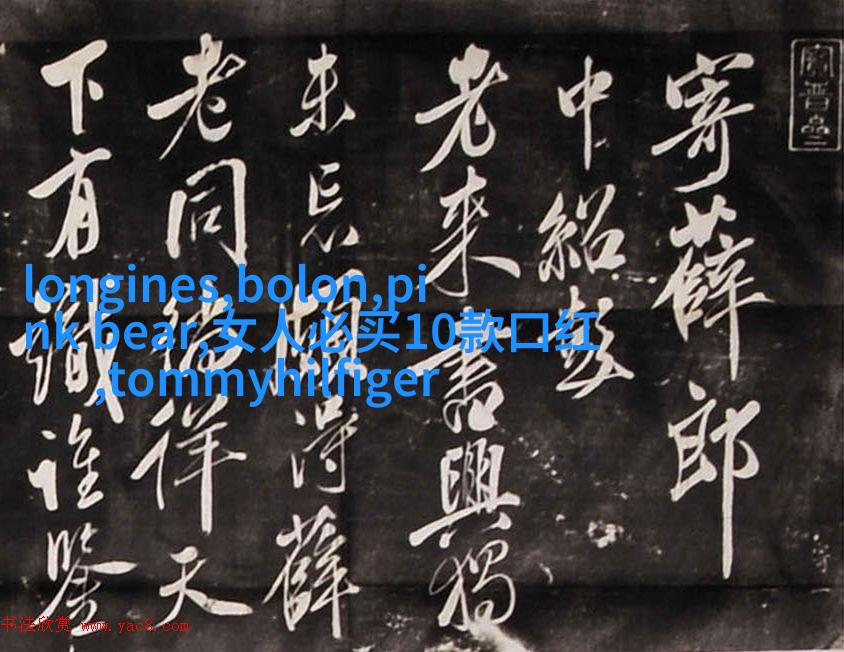 寄薛郎
中紹彭
老来書興獨
未忘頗得薛
老同徜徉天
下有識誰鑒
longines,bolon,pi
nk bear,女人必买10款口红
,tommyhilfiger
书法欣赏 www.yac8.com